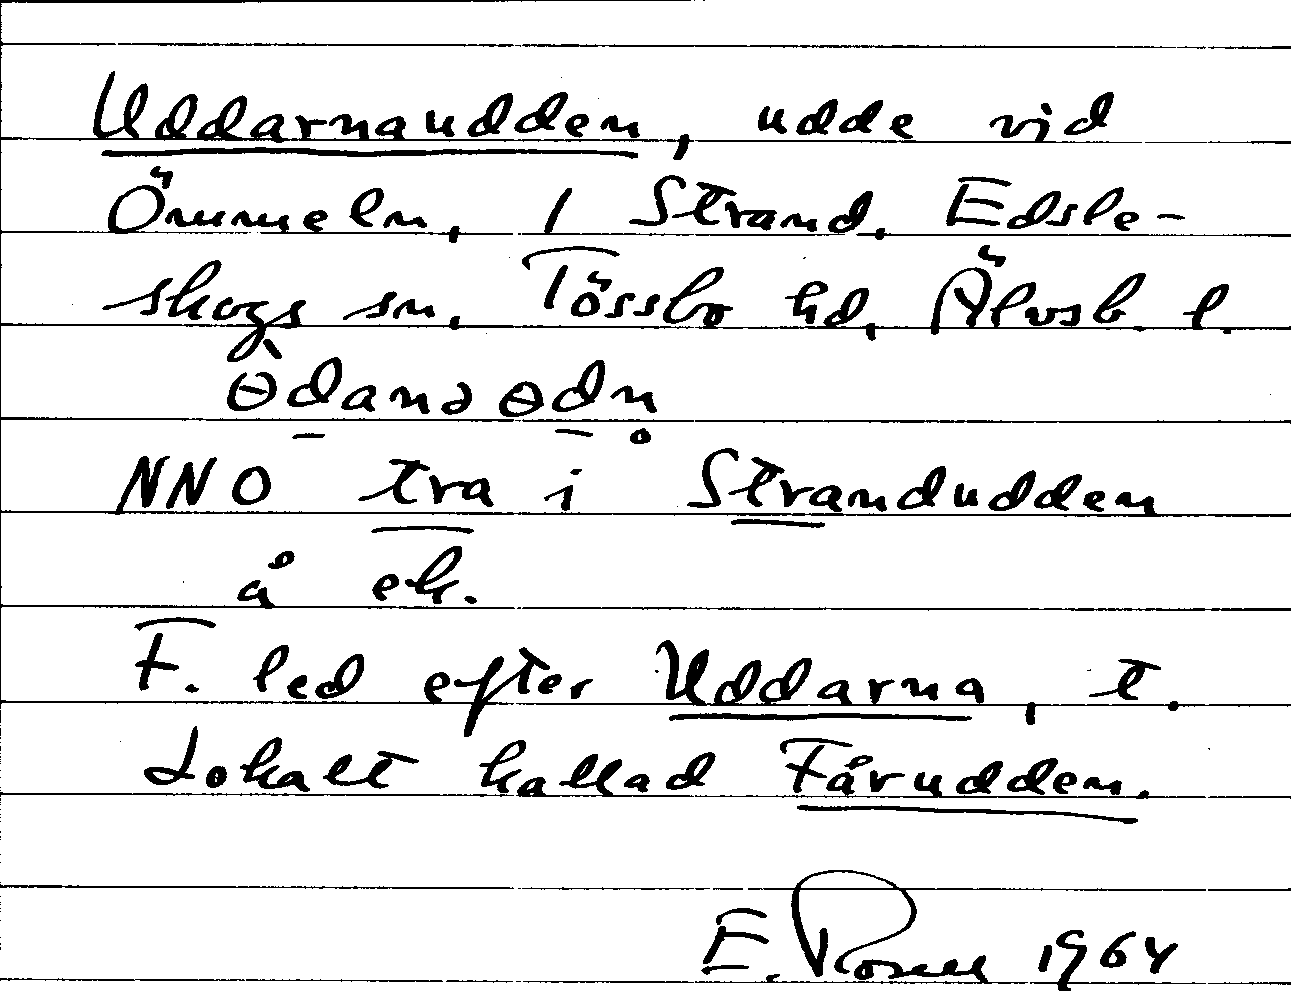 Uddarnaudden, udde vid
Ömmeln, 1 Strand, Edsle-
skogs sn, Tössbo hd, Älvsb. l.
ɵ̀danə ɵd̲n̥
NNO tra i Strandudden
å ek.
F. led efter Uddarna, t.
Lokalt kallad Fårudden.
E. 1964